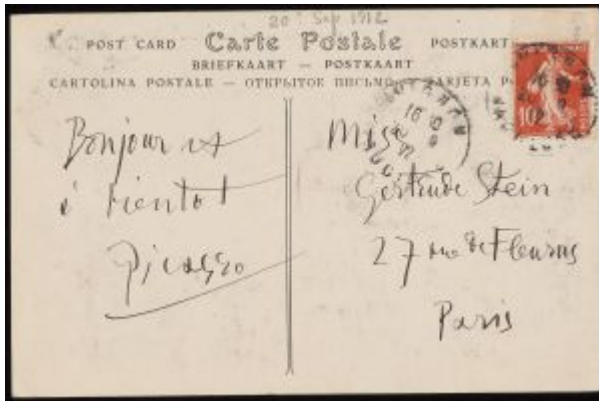 20 Sep 1912
POST CARD Carte Postale POSTKART
BRIEFKAART — POSTKAART
CARTOLINA POSTALE — ОТКРЫТОЕ ПИСЬМО
Bonjour et
à bientot
Picasso
Miss
Gertrude Stein
27 rue de Fleurus
Paris
10